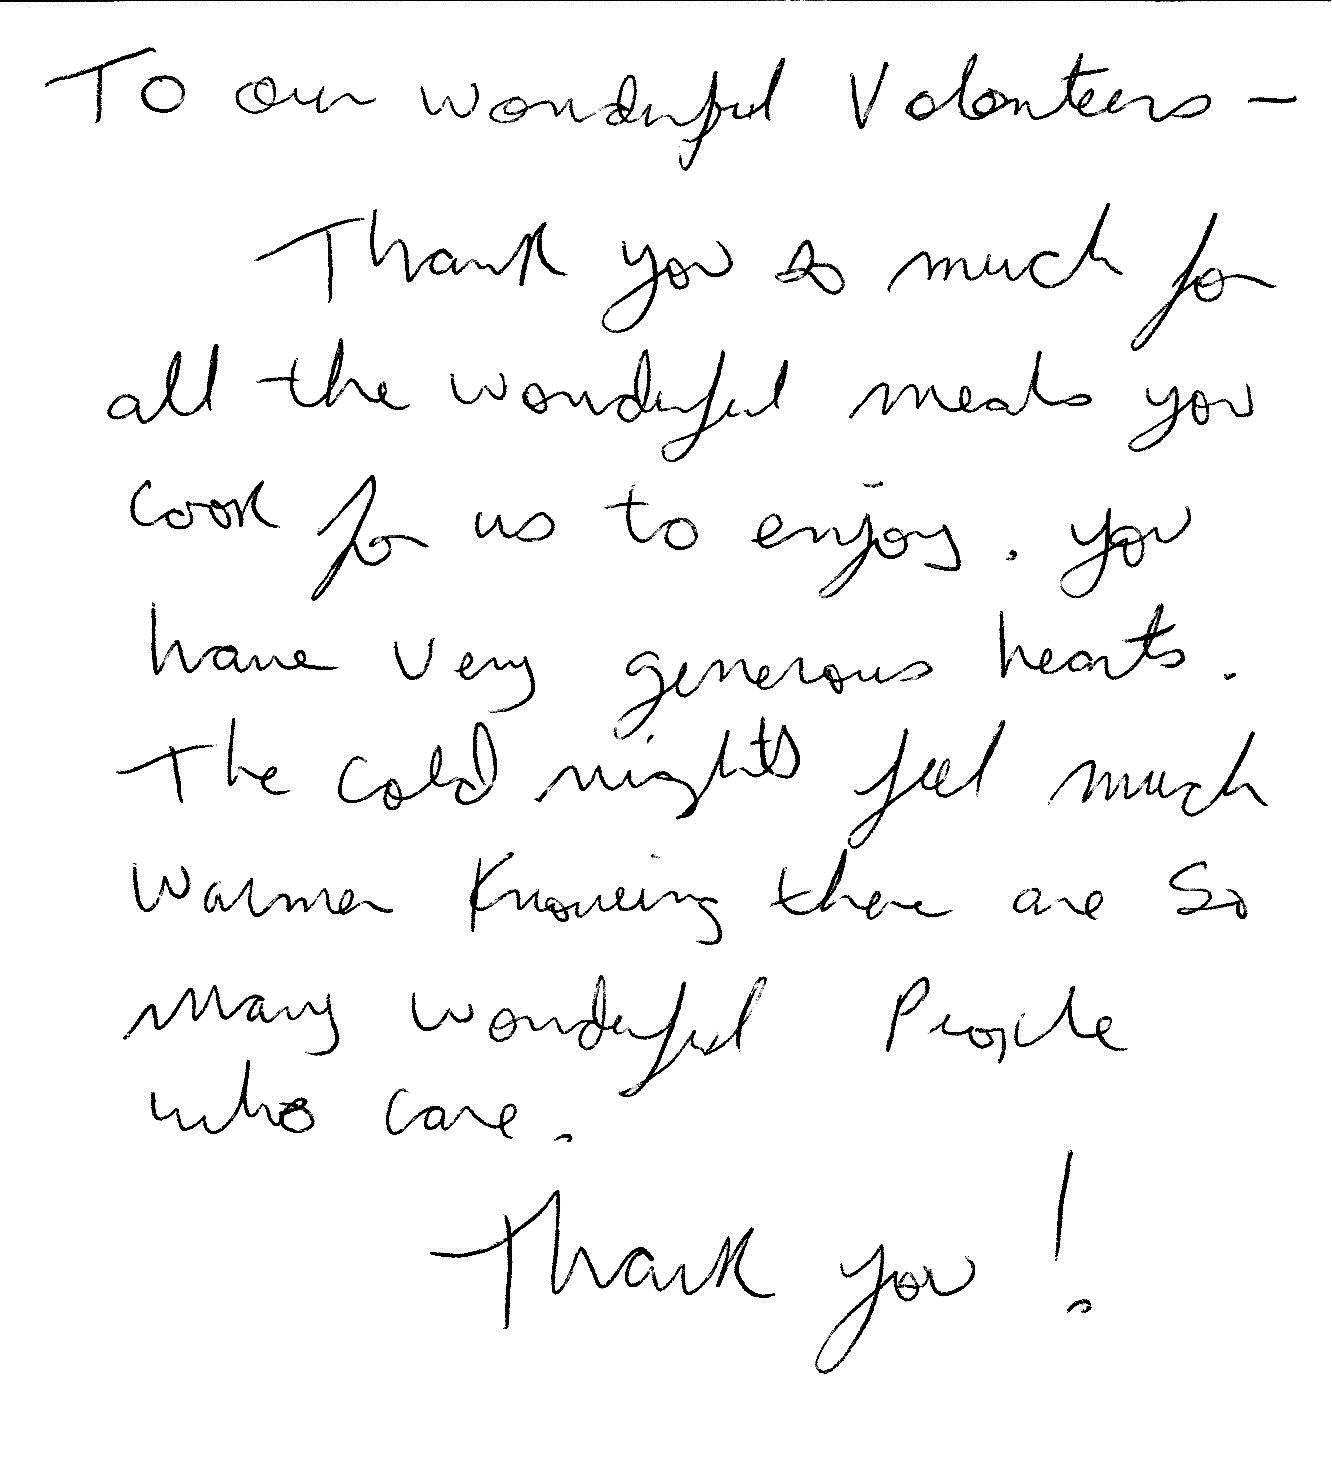 To our wonderful Volonteers -
Thank you so much for
all the wonderful meals you
cook for us to enjoy. you
have very generous hearts.
The cold nights feel much
warmer Knowing there are so
many wonderful People
who care.
Thank you!